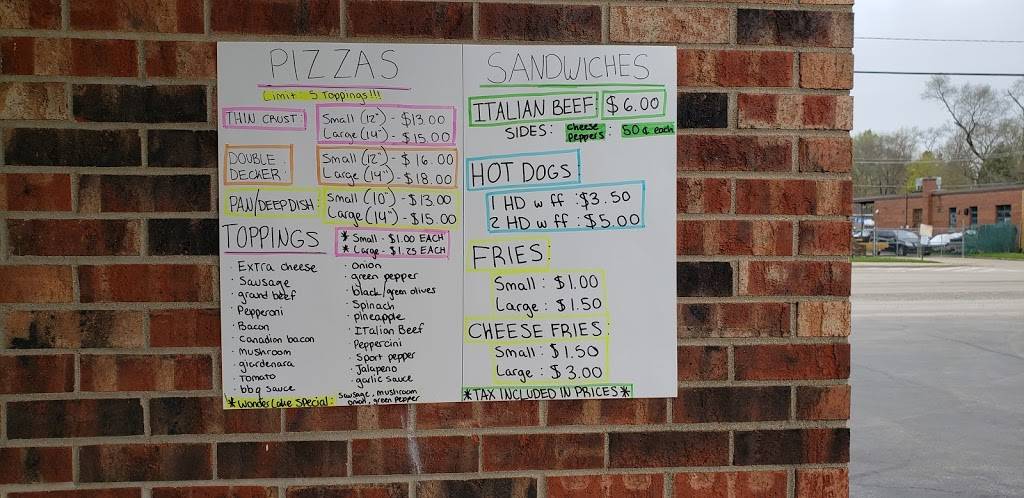 PIZZAS
Limit: 5 Toppings!!!
THIN CRUST: Small (12") - $13.00
Large (14") - $15.00
DOUBLE DECKER: Small (12") - $16.00
Large (14") - $18.00
PAN/DEEPDISH: Small (10") - $13.00
Large (14") - $15.00
TOPPINGS
* Small - $1.00 EACH
* Large - $1.25 EACH
· Extra cheese
· Sausage
· grand beef
· Pepperoni
· Bacon
· Canadian bacon
· mushroom
· giardenara
· Tomato
· bbq sauce
· onion
· green pepper
· black/green olives
· Spinach
· pineapple
· ITalian Beef
· Peppercini
· Sport pepper
· Jalapeno
· garlic sauce
* Wonder Lake Special: Sausage, mushroom
onion, green pepper
SANDWICHES
ITALIAN BEEF $6.00
SIDES: cheese peppers: 50¢ each
HOT DOGS
1 HD w ff : $3.50
2 HD w ff : $5.00
FRIES
Small: $1.00
Large: $1.50
CHEESE FRIES:
Small: $1.50
Large: $3.00
*TAX INCLUDED IN PRICES*